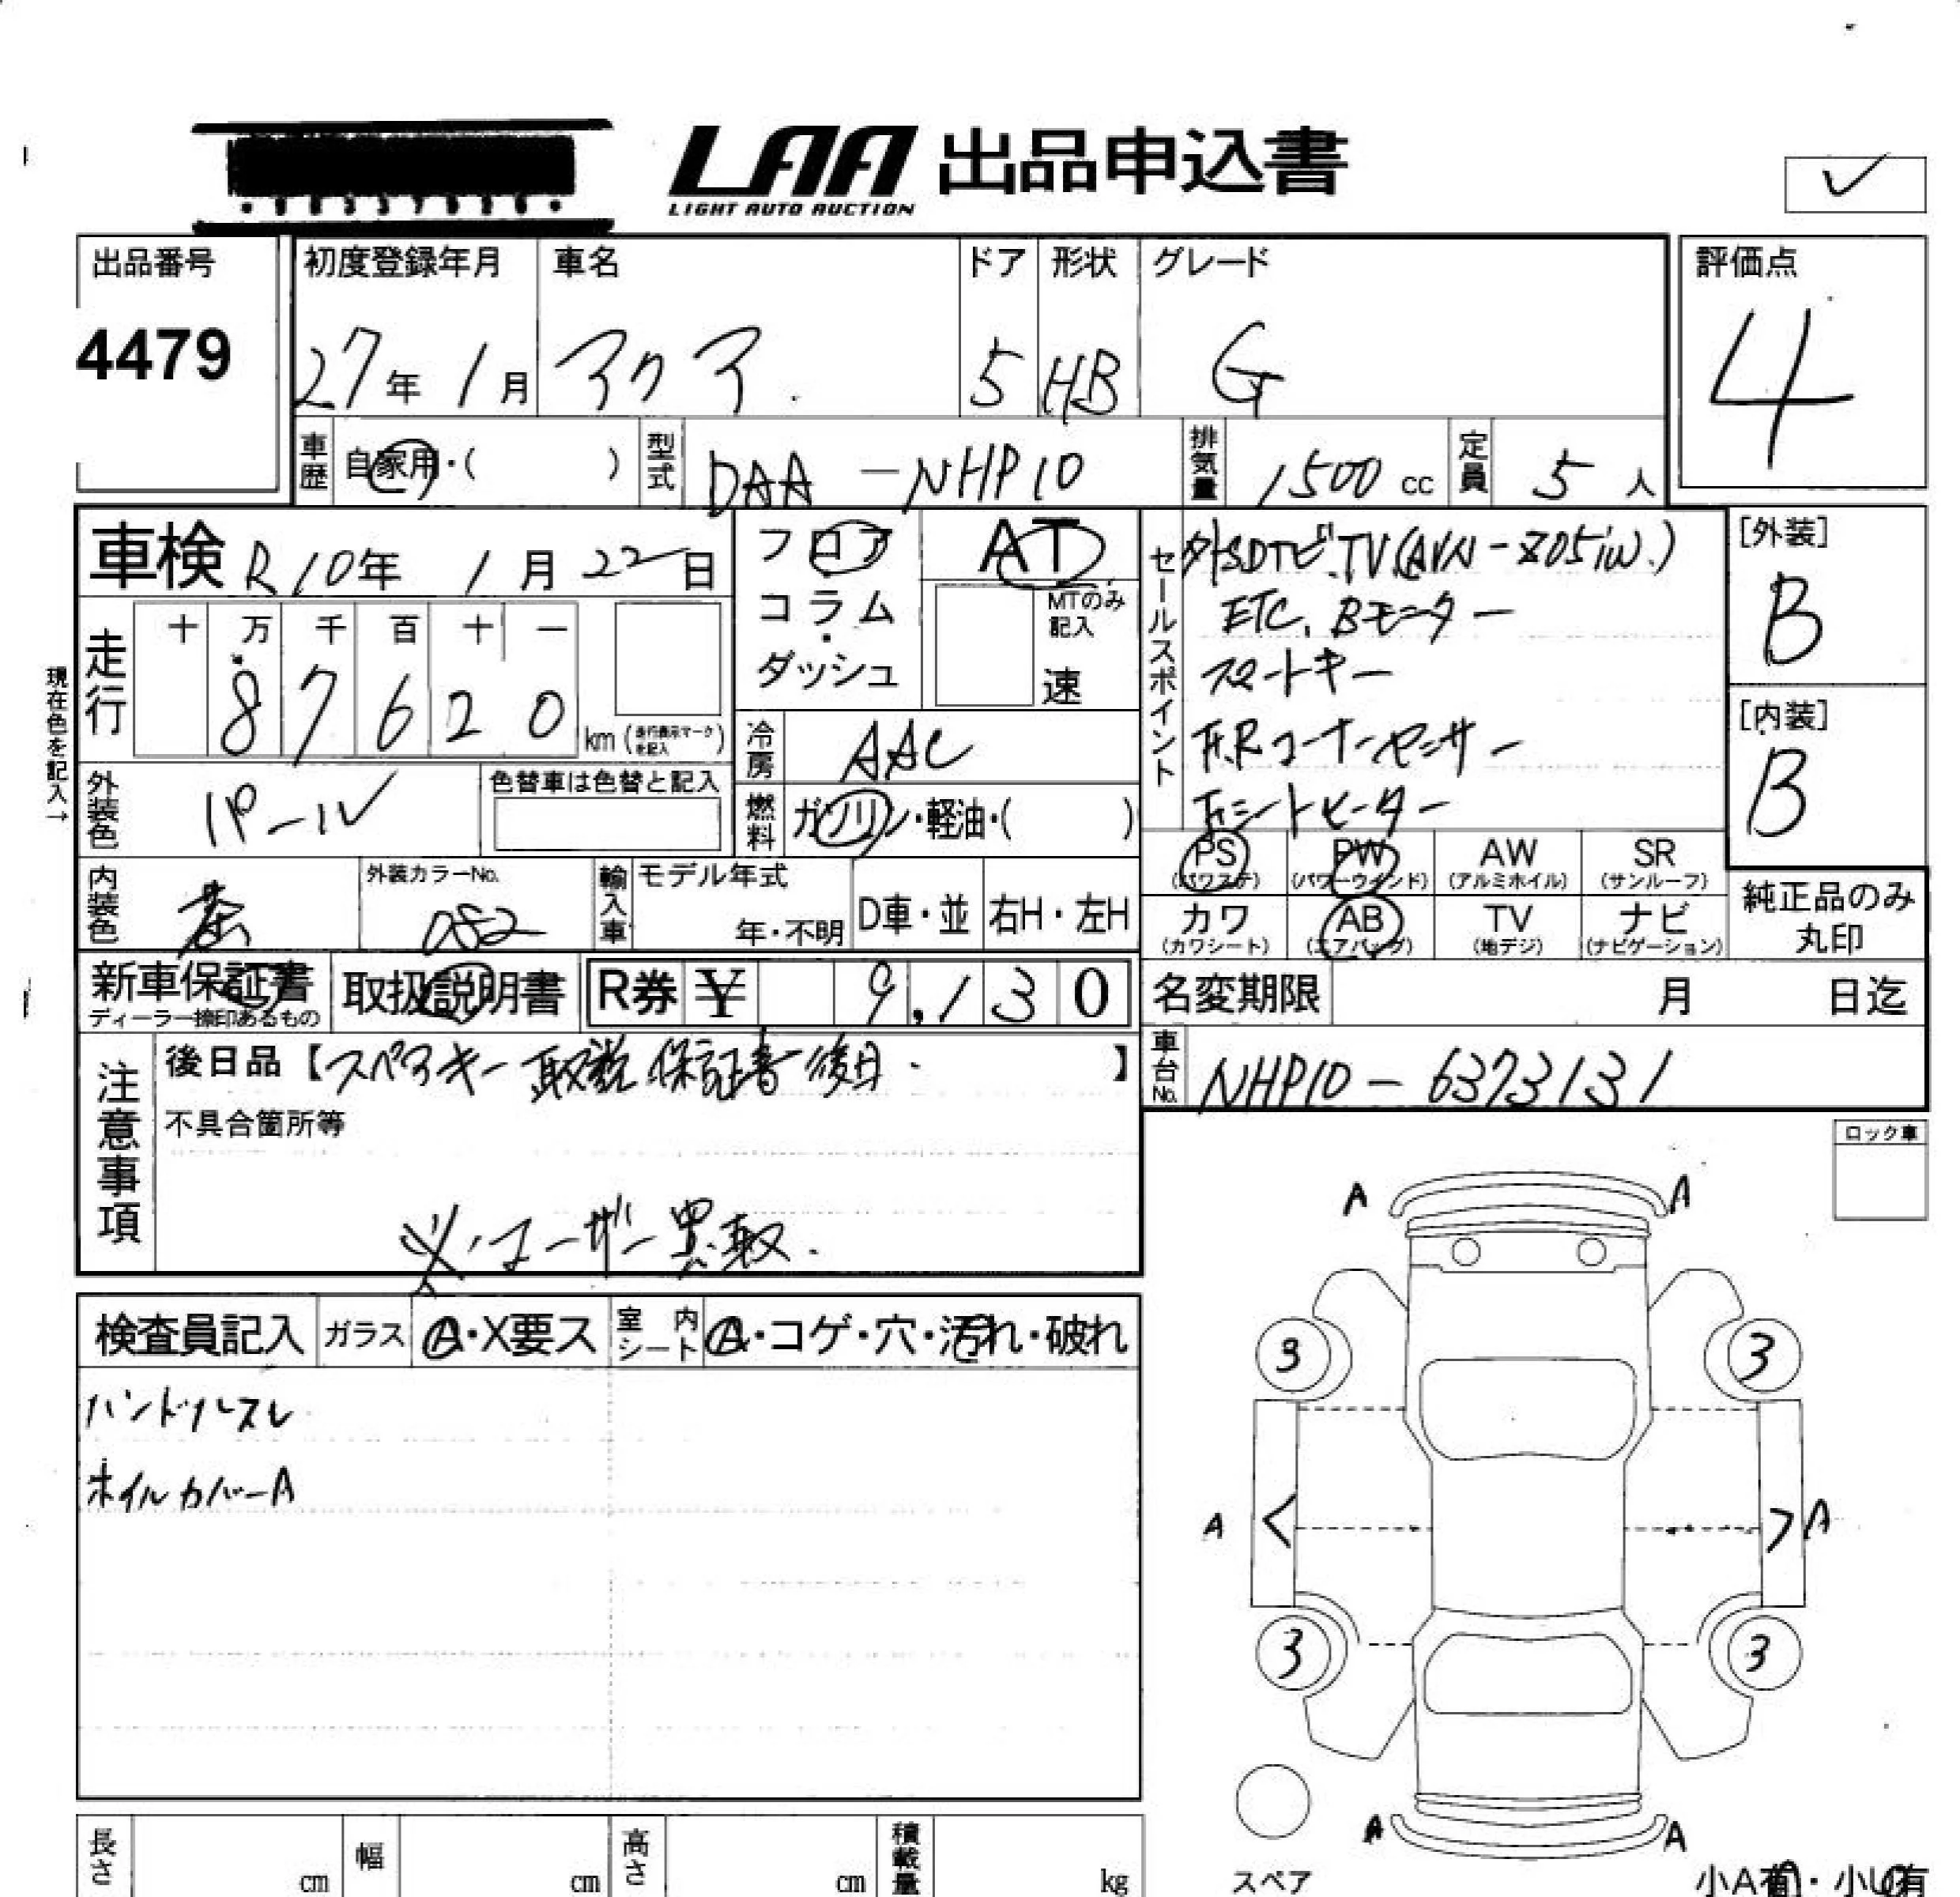 LAA 出品申込書
LIGHT AUTO AUCTION
✓
出品番号
4479
初度登録年月
27年 1月
車名
アクア
ドア
5
形状
HB
グレード
G
評価点
4
車歴
自家用・( )
型式
DAA-NHP10
排気量
1500 cc
定員
5 人
車検 R10年 1月22日
フロア・コラム・ダッシュ
AT
MTのみ記入
速
セールスポイント
外SDナビ.TV(AVN-Z05iw.)
ETC. Bモニター
スマートキー
F.Rコーナーセンサー
Fシートヒーター
[外装]
B
[内装]
B
現在色を記入→
走行
十 万 千 百 十 一
8 7 6 2 0
km(走行表示マークを記入)
冷房
AAC
外装色
パール
色替車は色替と記入
燃料
ガソリン・軽油・( )
PS
(パワステ)
PW
(パワーウインド)
AW
(アルミホイル)
SR
(サンルーフ)
カワ
(カワシート)
AB
(エアバッグ)
TV
(地デジ)
ナビ
(ナビゲーション)
純正品のみ丸印
内装色
茶
外装カラーNo.
082
輸入車
モデル年式
年・不明
D車・並
右H・左H
新車保証書
ディーラー捺印あるもの
取扱説明書
R券 ¥ 9,130
名変期限
月 日迄
注意事項
後日品【スペアキー 取説 保証書 後日.】
不具合箇所等
※ユーザー買取.
車台No.
NHP10-6373131
ロック車
検査員記入
ガラス
A・X要ス
室内シート
A・コゲ・穴・汚れ・破れ
ハンドルスレ
ホイルカバーA
A A
3 3
A < > A
3 3
A A
スペア
小A有・小U有
長さ
cm
幅
cm
高さ
cm
積載量
kg